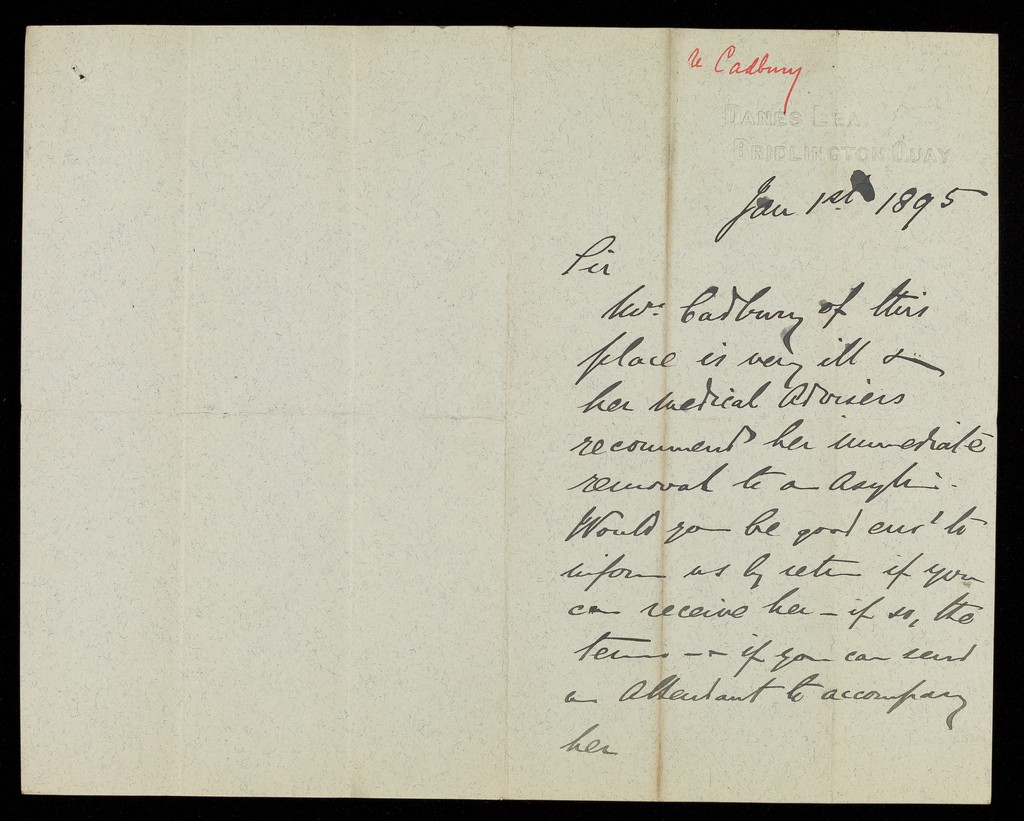 re Cadbury
DANES LEA
BRIDLINGTON QUAY
Jan 1st 1895
Sir
Mrs. Cadbury of this
place is very ill &
her medical advisers
recommend her immediate
removal to an Asylum.
Would you be good eno' to
inform us by return if you
can receive her – if so, the
terms – & if you can send
an Attendant to accompany
her